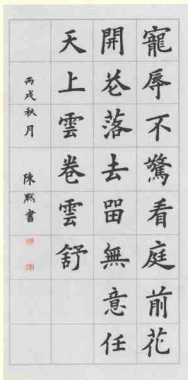 寵辱不驚看庭前花
開花落去留無意任
天上雲卷雲舒
丙戌秋月 陳熙書